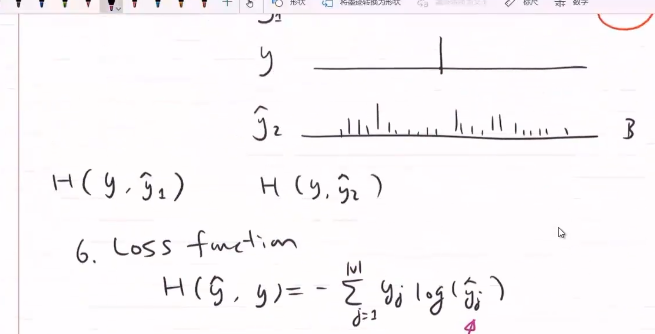 形状 将墨迹转换为形状 标尺 数学
y
ŷ₂ B
H(y, ŷ₁) H(y, ŷ₂)
6. Loss function
H(ŷ, y) = - ∑_{j=1}^{|v|} y_j log(ŷ_j)